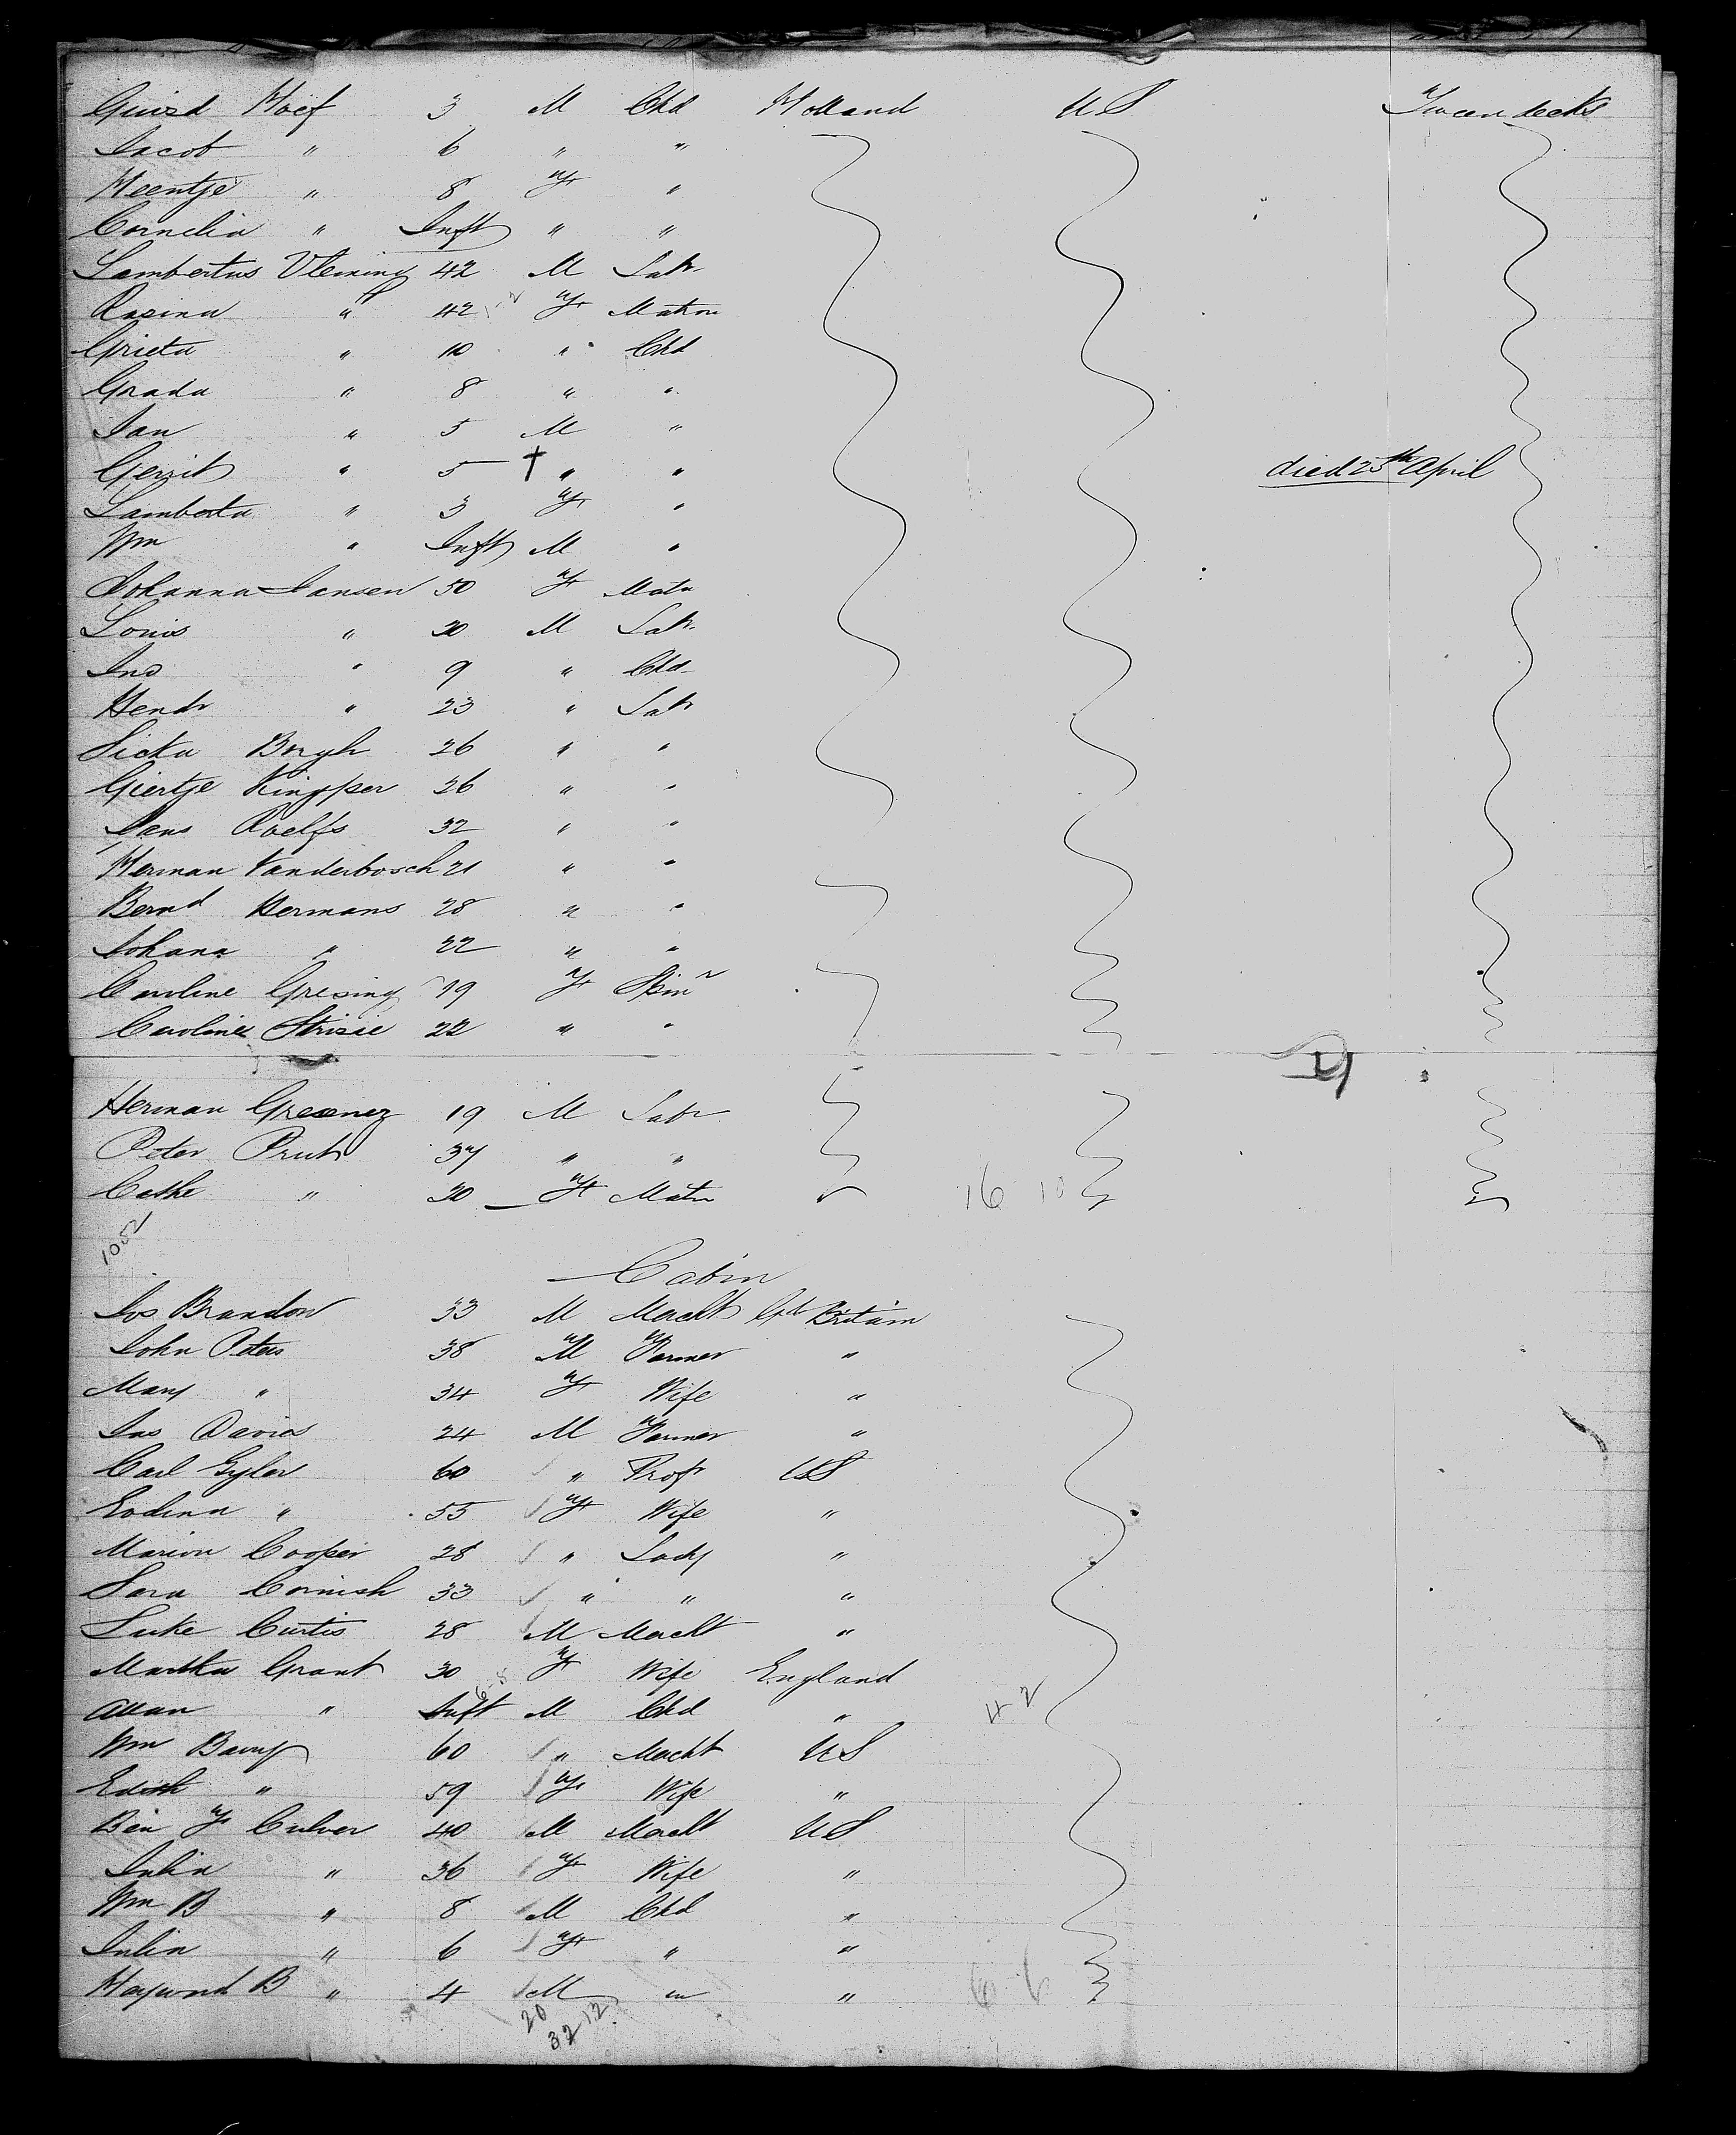 Hoef 3 M Chd Holland US Tween decks
Jacob " 6 " "
Heentje " 8 F "
Cornelia " Inft " "
Lambertus Vleming 42 M Labr
Rosina " 42 F Matron
Grieta " 10 " Chd
Grada " 8 " "
Jan " 5 M "
Gerrit " 5 † " " died 25th April
Lamberta " 3 F "
Wm " Inft M "
Johanna Jansen 50 F Matn
Louis " 30 M Labr
Jno " 9 " Chd
Hendr " 23 " Labr
Sicka Borgh 26 " "
Giertje Kingper 26 " "
Jans Roelfs 32 " "
Herman Vanderbosch 21 " "
Bernd Hermans 28 " "
Johana " 22 " "
Caroline Gresing 19 F Spinr
Caroline 22 " "
Herman 19 M Labr
Peter Pruh 37 " "
Cathe " 30 F Matn 16 10
1052
Cabin
Jos Brandon 33 M Mercht Gt Britain
John Peters 38 M Farmer "
Mary " 34 F Wife "
Jas Davies 24 M Farmer "
Carl Gyler 60 " Profr US
" 55 F Wife "
Marion Cooper 28 " Lady "
Sara Cornish 33 " " "
Luke Curtis 28 M Mercht "
Martha Grant 30 F Wife England
Allan " Inft M Chd " 4 2
Wm 60 " Mercht US
Edith " 59 F Wife "
Ben F Culver 40 M Mercht US
Julia " 36 F Wife "
Wm B " 8 M Chd "
Julia " 6 F " "
B " 4 M " " 6 6
20
32 12